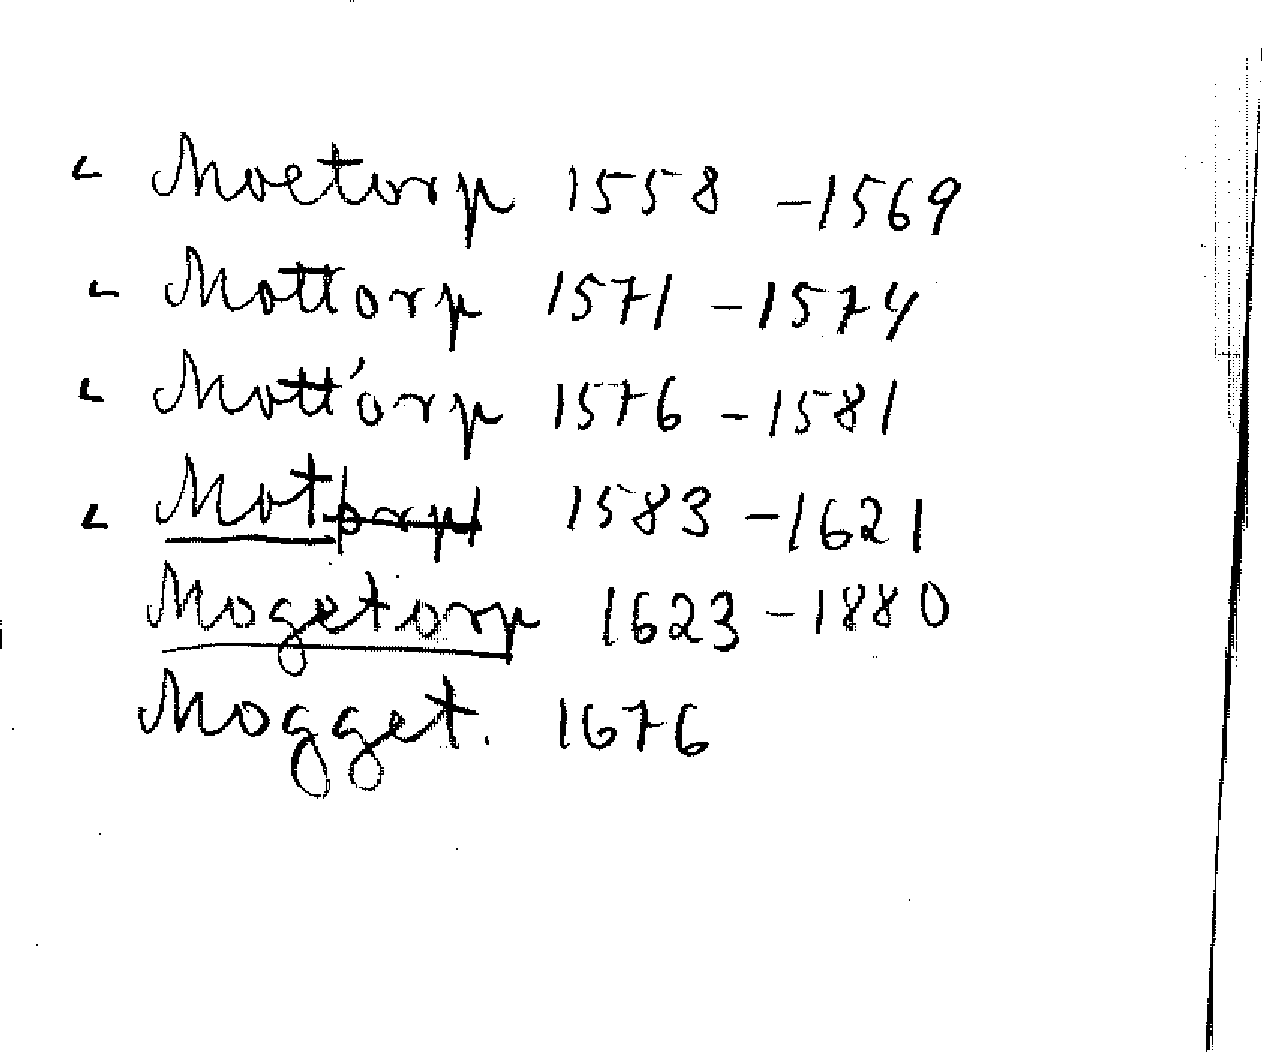 Moetorp 1558 - 1569
Mottorp 1571 - 1574
Mott'orp 1576 - 1581
Motorp 1583 - 1621
Mogetorp 1623 - 1880
Mogget. 1676